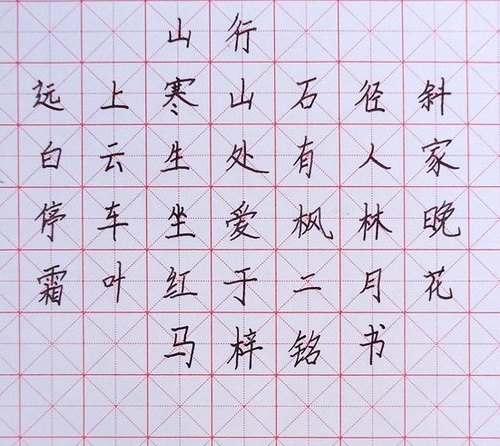 山行
远上寒山石径斜
白云生处有人家
停车坐爱枫林晚
霜叶红于二月花
马梓铭书